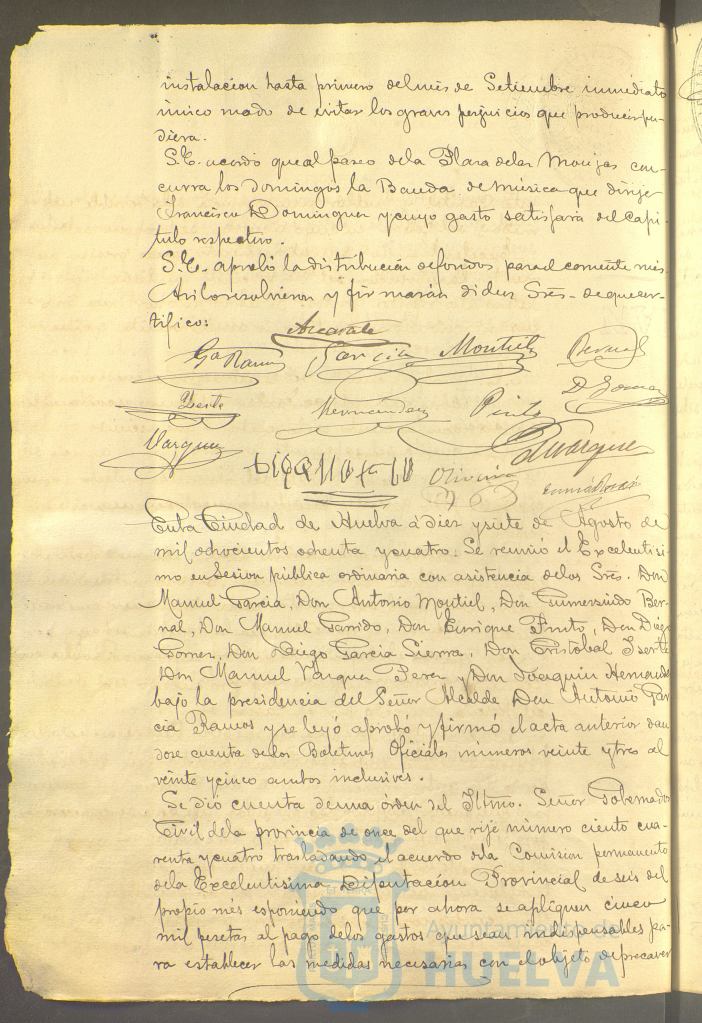 instalacion hasta primero del mes de Setiembre inmediato
único modo de evitar los graves perjuicios que producir pu-
diera.
S.E. acordó que al paseo de la Plaza de las Monjas con-
curra los Domingos la Banda de música que dirije
Francisco Dominguez y cuyo gasto satisfará del Capi-
tulo respectivo.
S.E. aprobó la distribución de fondos para el corriente mes
Asi lo resolvieron y firmarán dichos Sres. de que cer-
tifico:
Ga Ramos Garcia Montiel Bernal
Iserte Hernandez Pinto D. Gomez
Vazquez
En la Ciudad de Huelva á diez y siete de Agosto de
mil ochocientos ochenta y cuatro. Se reunió el Excelentisi-
mo en Sesion pública ordinaria con asistencia de los Sres. Don
Manuel Garcia, Don Antonio Montiel, Don Gumersindo Ber-
nal, Don Manuel Garrido, Don Enrique Pinto, Don Diego
Gomez, Don Diego Garcia Sierra, Don Cristobal Iserte
Don Manuel Vazquez Perez y Don Joaquin Hernandez
bajo la presidencia del Señor Alcalde Don Antonio Gar
cia Ramos y se leyó aprobó y firmó el acta anterior dan
dose cuenta de los Boletines Oficiales números veinte y tres al
veinte y cinco ambos inclusives.
Se dió cuenta de una órden del Iltmo. Señor Gobernador
Civil de la provincia de once del que rije número ciento cua-
renta y cuatro trasladando el acuerdo de la Comision permanente
de la Excelentisima Diputacion Provincial de seis del
propio mes esponiendo que por ahora se apliquen cinco
mil pesetas al pago de los gastos que sean indispensables pa-
ra establecer las medidas necesarias con el objeto de precaver
Ayuntamiento de
HUELVA